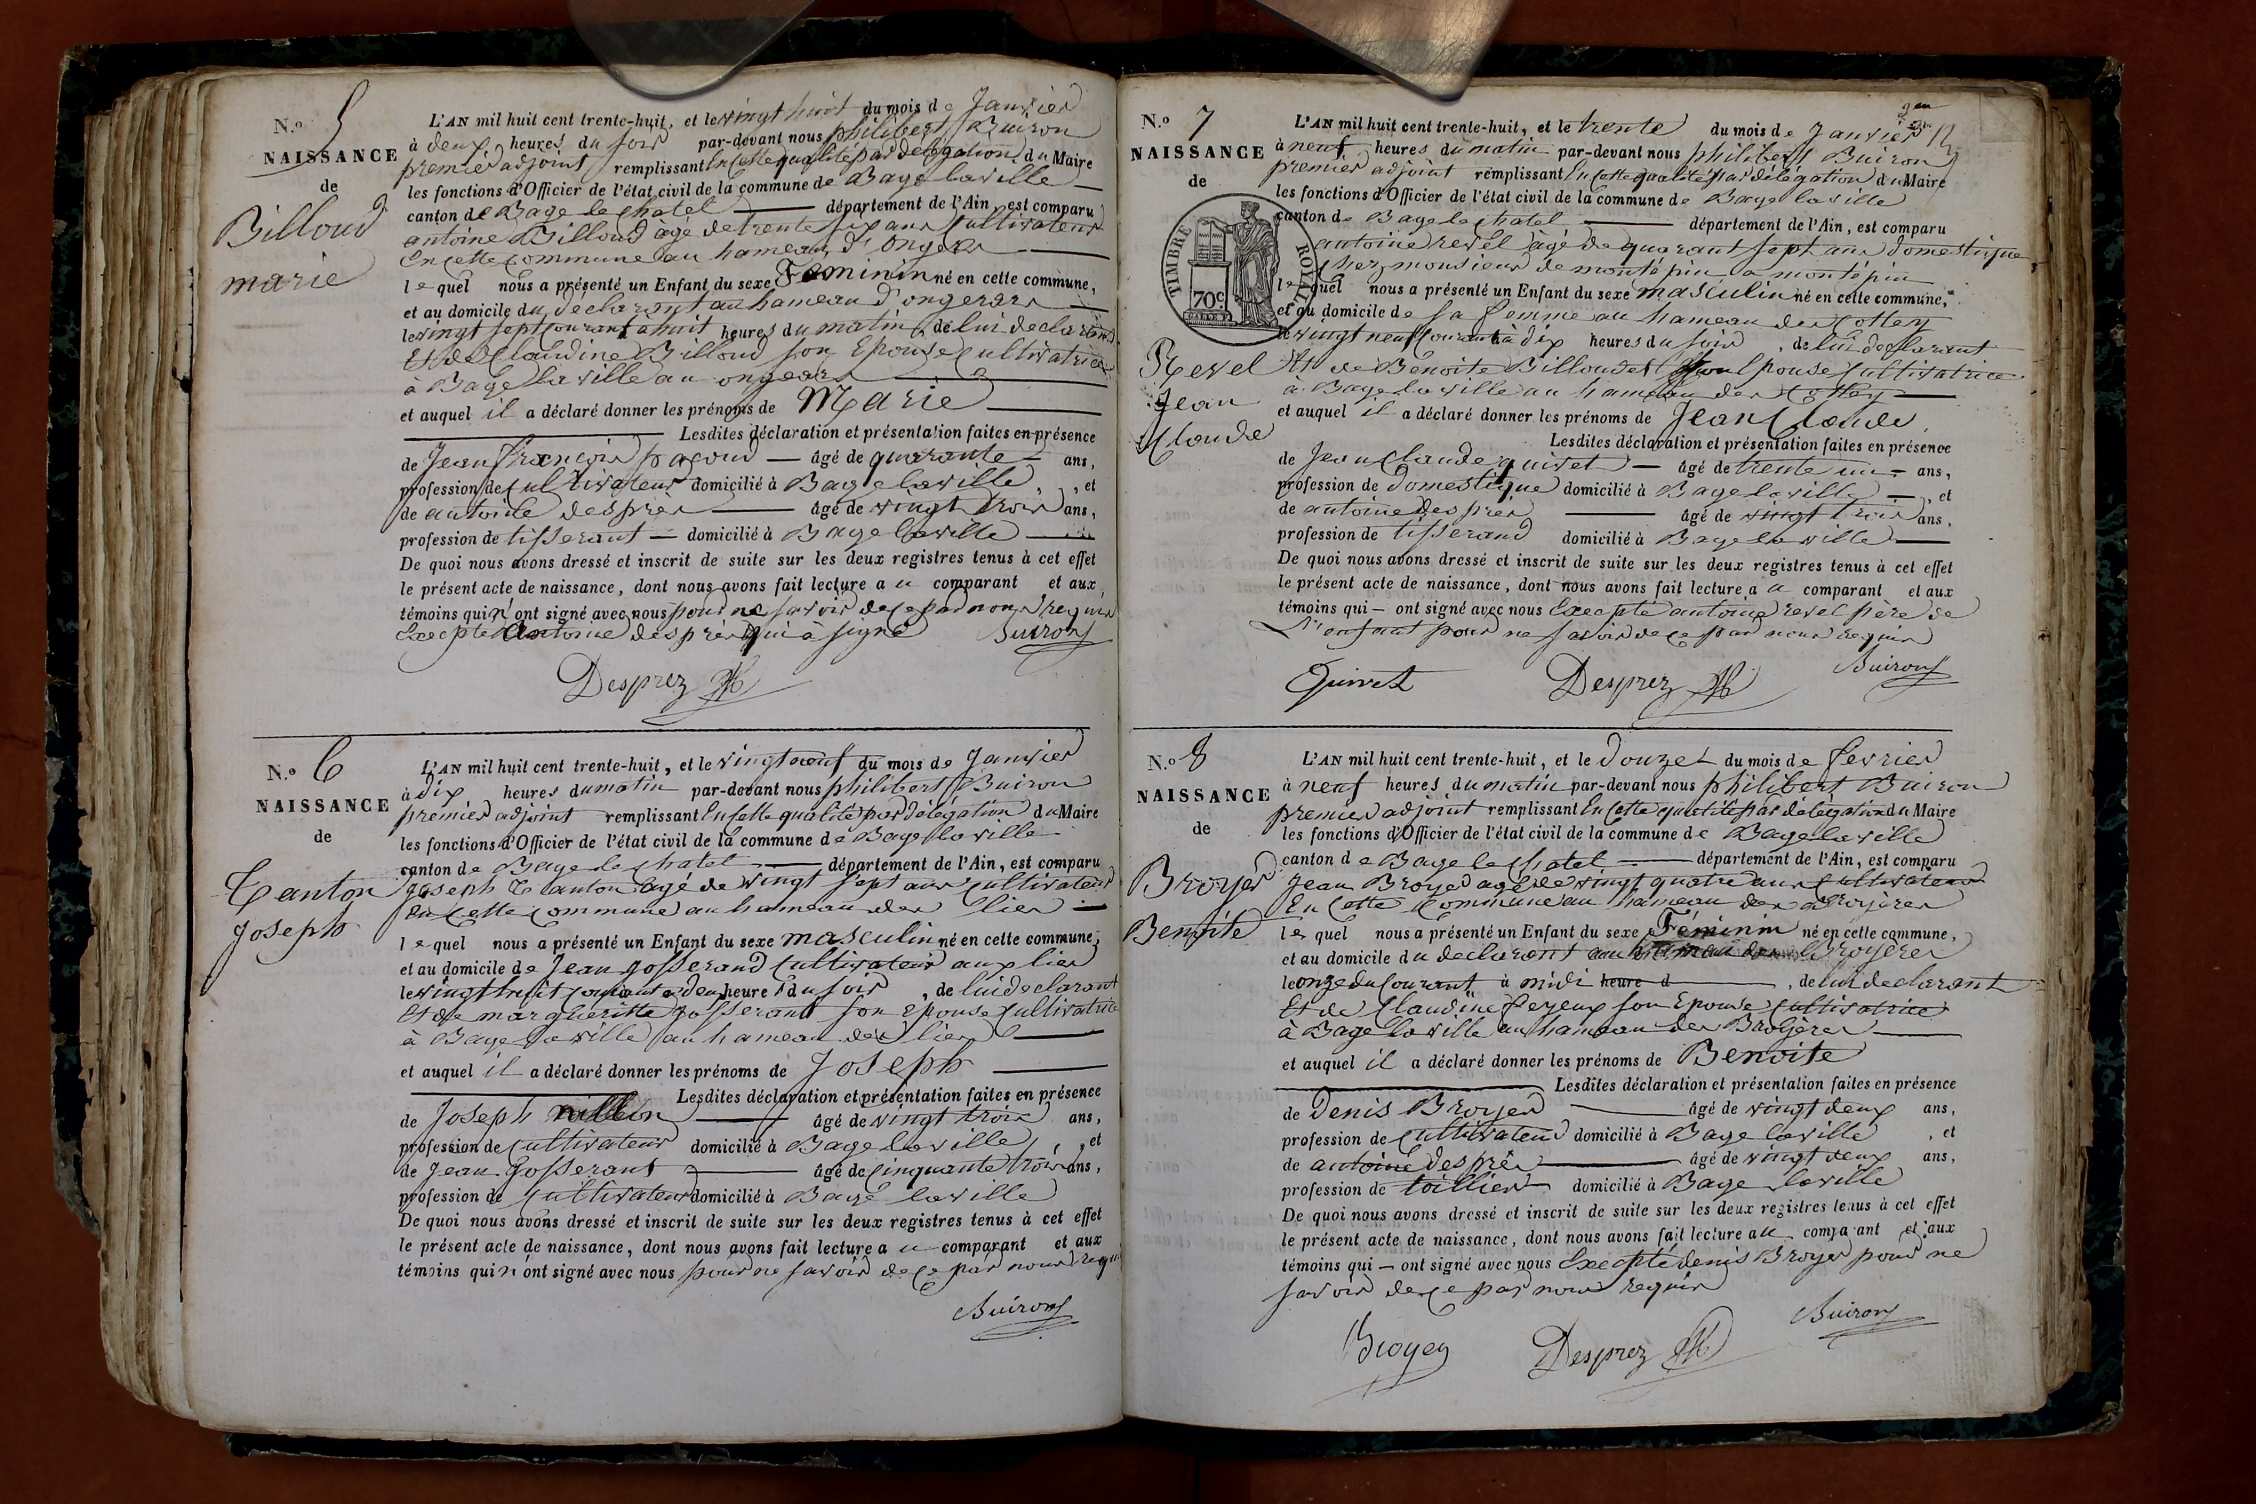 N.o 5
NAISSANCE
de
Billoud
marie
L'AN mil huit cent trente-huit, et le vingt huit du mois de Janvier
à deux heures du soir par-devant nous philibert Buiron
premier adjoint remplissant En cette qualité par délégation du Maire
les fonctions d'Officier de l'état civil de la commune de Bage laville
canton de Bage le chatel département de l'Ain, est comparu
antoine Billoud agé de trente six ans Cultivateur
En cette commune au hameau d'
le quel nous a présenté un Enfant du sexe Feminin né en cette commune,
et au domicile du déclarant au hameau d'
le vingt sept courant a huit heures du matin, de lui declarant
Et de Claudine Billoud son Epouse Cultivatrice
à Bage laville au
et auquel il a déclaré donner les prénoms de Marie
Lesdites déclaration et présentation faites en présence
de Jean françois pacoud âgé de quarante ans,
profession de Cultivateur domicilié à Bage laville, et
de antoine desprès âgé de vingt trois ans,
profession de tisserant domicilié à Bage laville
De quoi nous avons dressé et inscrit de suite sur les deux registres tenus à cet effet
le présent acte de naissance, dont nous avons fait lecture au comparant et aux
témoins qui n'ont signé avec nous pour ne savoir de ce par nous requis
Excepté Antoine desprès qui à signé Buiron
Desprez
N.o 6
NAISSANCE
de
Canton
Joseph
L'AN mil huit cent trente-huit, et le vingt neuf du mois de Janvier
à dix heures du matin par-devant nous philibert Buiron
premier adjoint remplissant En cette qualité par délégation du Maire
les fonctions d'Officier de l'état civil de la commune de Bage laville
canton de Bage le chatel département de l'Ain, est comparu
joseph Canton agé de vingt sept ans Cultivateur
En cette commune au hameau des lies
le quel nous a présenté un Enfant du sexe masculin né en cette commune,
et au domicile de Jean josserand Cultivateur aux lies
le vingt huit courant a deux heures du soir, de lui declarant
Et de margueritte josserand son Epouse Cultivatrice
à Bage laville au hameau des lies
et auquel il a déclaré donner les prénoms de Joseph
Lesdites déclaration et présentation faites en présence
de Joseph âgé de vingt trois ans,
profession de Cultivateur domicilié à Bage laville, et
de Jean Josserant âgé de Cinquante trois ans,
profession de Cultivateur domicilié à Bagé laville
De quoi nous avons dressé et inscrit de suite sur les deux registres tenus à cet effet
le présent acte de naissance, dont nous avons fait lecture au comparant et aux
témoins qui n'ont signé avec nous pour ne savoir de ce par nous requis
Buiron
N.o 7
NAISSANCE
de
TIMBRE ROYAL
70c
Revel
Jean
Claude
L'AN mil huit cent trente-huit, et le trente du mois de Janvier
à neuf heures du matin par-devant nous philibert Buiron
premier adjoint remplissant En cette qualité par délégation du Maire
les fonctions d'Officier de l'état civil de la commune de Bage laville
canton de Bage le chatel département de l'Ain, est comparu
antoine revel âgé de quarant sept ans domestique
chez monsieur de montépin a montépin
le quel nous a présenté un Enfant du sexe masculin né en cette commune,
et au domicile de sa femme au hameau des Cottey
le vingt neuf Courant à dix heures du soir, de lui declarant
Et de Benoite Billoudet son Epouse Cultivatrice
à Bage laville au hameau des Cottey
et auquel il a déclaré donner les prénoms de Jean Claude
Lesdites déclaration et présentation faites en présence
de Jean Claude quivet âgé de trente un ans,
profession de Domestique domicilié à Bage laville, et
de antoine Desprès âgé de vingt trois ans,
profession de tisserand domicilié à Bage laville
De quoi nous avons dressé et inscrit de suite sur les deux registres tenus à cet effet
le présent acte de naissance, dont nous avons fait lecture au comparant et aux
témoins qui ont signé avec nous Excepté antoine revel père de
l'enfant pour ne savoir de ce par nous requis
Quivet Desprez Buiron
N.o 8
NAISSANCE
de
Broyer
Benoite
L'AN mil huit cent trente-huit, et le Douze du mois de fevrier
à neuf heures du matin par-devant nous philibert Buiron
premier adjoint remplissant En Cette qualité par délégation du Maire
les fonctions d'Officier de l'état civil de la commune de Bage laville
canton de Bage le Chatel département de l'Ain, est comparu
Jean Broyer agé de vingt quatre ans Cultivateur
En Cette Commune au hameau des Broyères
le quel nous a présenté un Enfant du sexe Féminin né en cette commune,
et au domicile du declarant au hameau des Broyères
le onze du Courant à midi heure d, de lui declarant
Et de Claudine son Epouse Cultivatrice
à Bage laville au hameau des Broyères
et auquel il a déclaré donner les prénoms de Benoite
Lesdites déclaration et présentation faites en présence
de Denis Broyer âgé de vingt deux ans,
profession de Cultivateur domicilié à Bage laville, et
de antoine desprès âgé de vingt deux ans,
profession de toillier domicilié à Bage laville
De quoi nous avons dressé et inscrit de suite sur les deux registres tenus à cet effet
le présent acte de naissance, dont nous avons fait lecture au comparant et aux
témoins qui ont signé avec nous Excepté denis Broyer pour ne
savoir de ce par nous requis
Broyer Desprez Buiron